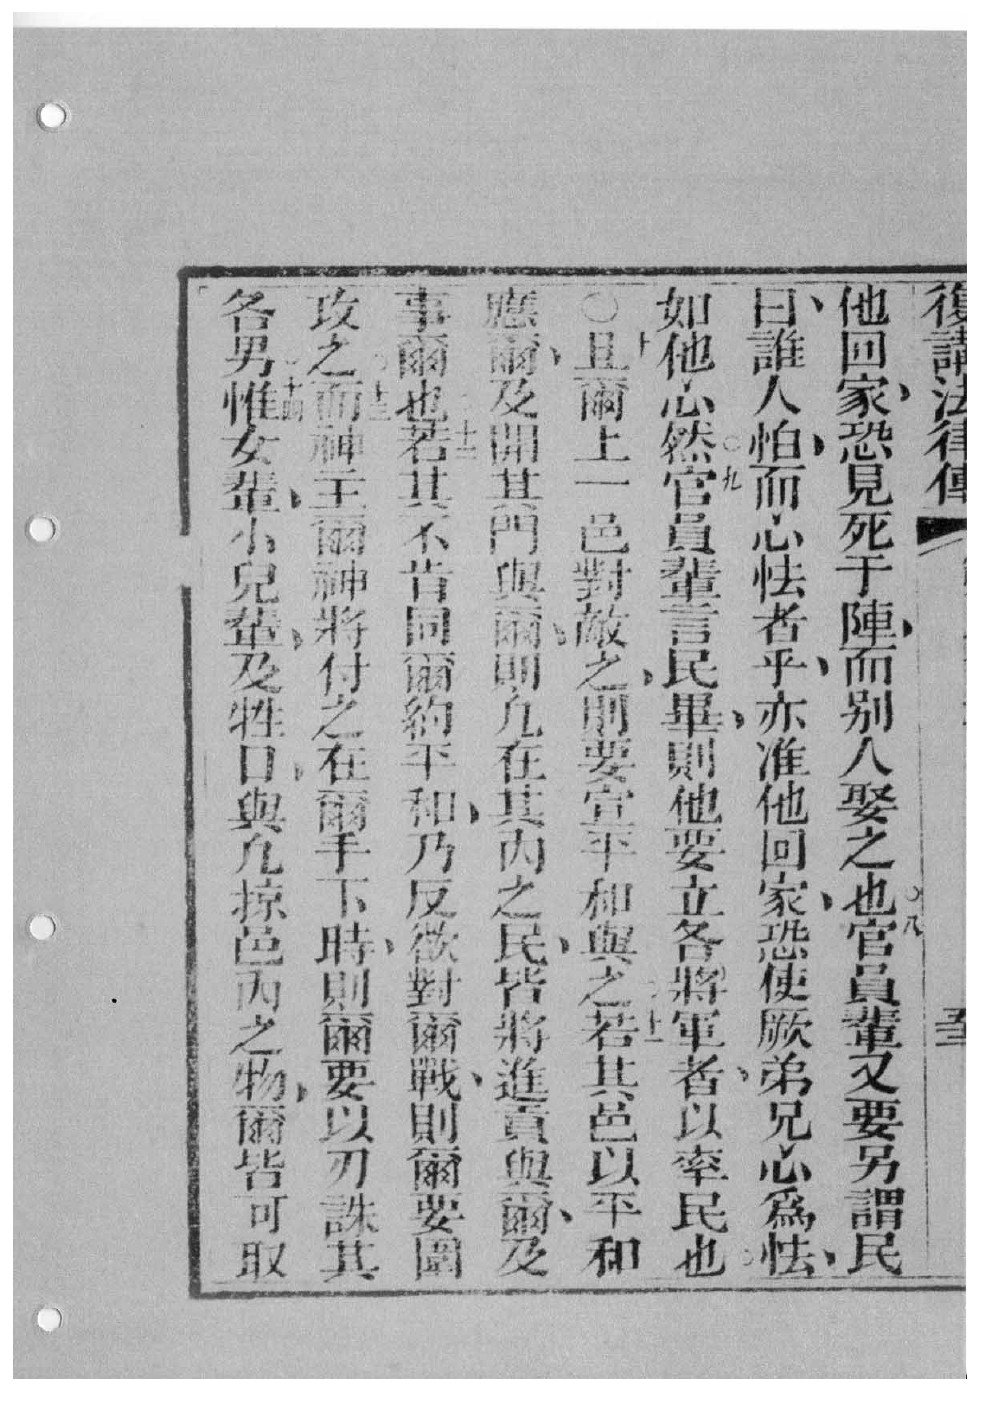 復講法律傳
他回家、恐見死于陣、而别人娶之也○八官員輩又要另謂民
曰、誰人怕、而心怯者乎、亦准他回家、恐使厥弟兄心爲怯、
如他心然○九官員輩言民畢、則他要立各將軍者、以率民也○
○十且爾上一邑對敵之、則要宣平和與之○十一若其邑以平和
應爾、及開其門與爾、則凢在其內之民、皆將進貢與爾、及
事爾也○十二若其不肯同爾約平和、乃反欲對爾戰、則爾要圍
攻之○十三而神主爾神將付之在爾手下時、則爾要以刃誅其
各男○十四惟女輩、小兒輩、及牲口、與凢掠邑內之物、爾皆可取